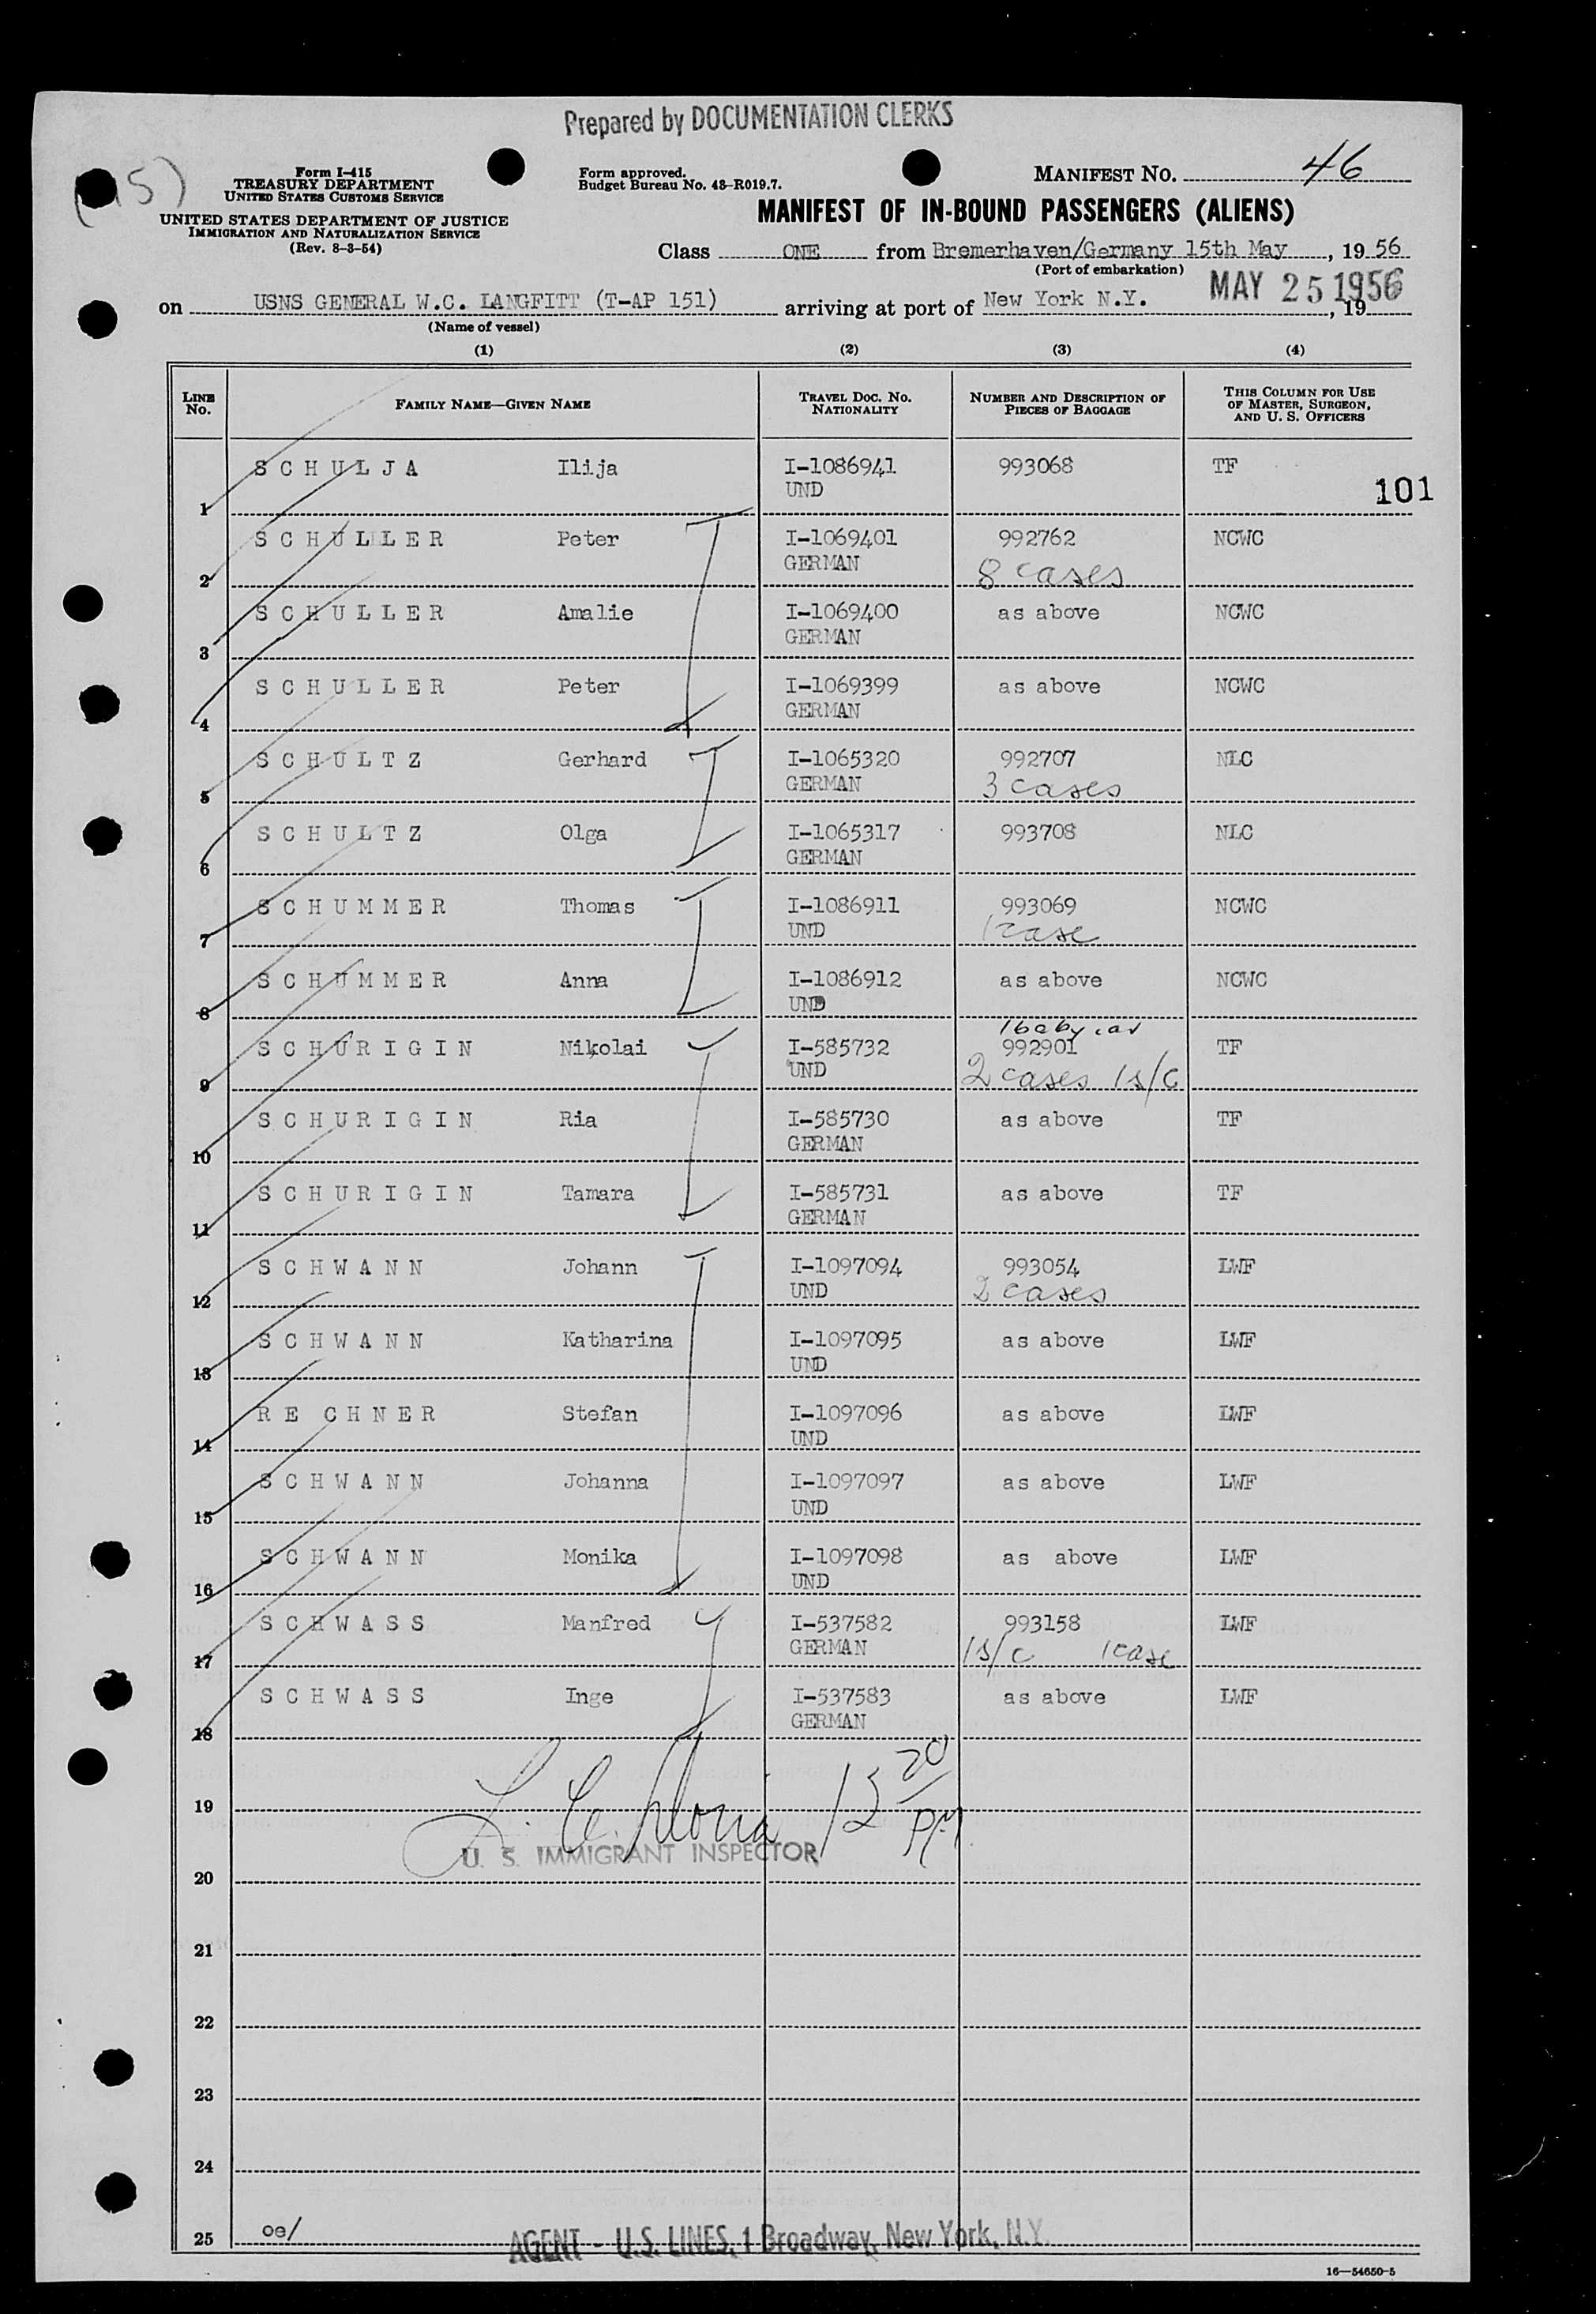 Prepared by DOCUMENTATION CLERKS
Form I-415
TREASURY DEPARTMENT
UNITED STATES CUSTOMS SERVICE
UNITED STATES DEPARTMENT OF JUSTICE
IMMIGRATION AND NATURALIZATION SERVICE
(Rev. 8-3-54)
Form approved.
Budget Bureau No. 43-R019.7.
MANIFEST NO. 46
MANIFEST OF IN-BOUND PASSENGERS (ALIENS)
Class ONE from Bremerhaven/Germany 15th May, 19 56
(Port of embarkation)
on USNS GENERAL W.C. LANGFITT (T-AP 151) arriving at port of New York N.Y. MAY 25 1956, 19
(Name of vessel)
(1) (2) (3) (4)
LINE No. FAMILY NAME—GIVEN NAME TRAVEL DOC. NO. NATIONALITY NUMBER AND DESCRIPTION OF PIECES OF BAGGAGE THIS COLUMN FOR USE OF MASTER, SURGEON, AND U. S. OFFICERS
101
1 SCHULJA Ilija I-1086941 993068 TF
UND
2 SCHULLER Peter I-1069401 992762 NCWC
GERMAN 8 cases
3 SCHULLER Amalie I-1069400 as above NCWC
GERMAN
4 SCHULLER Peter I-1069399 as above NCWC
GERMAN
5 SCHULTZ Gerhard I-1065320 992707 NLC
GERMAN 3 cases
6 SCHULTZ Olga I-1065317 993708 NLC
GERMAN
7 SCHUMMER Thomas I-1086911 993069 NCWC
UND 1 case
8 SCHUMMER Anna I-1086912 as above NCWC
UND
1 baby car
9 SCHURIGIN Nikolai I-585732 992901 TF
UND 2 cases 1 s/c
10 SCHURIGIN Ria I-585730 as above TF
GERMAN
11 SCHURIGIN Tamara I-585731 as above TF
GERMAN
12 SCHWANN Johann I-1097094 993054 LWF
UND 2 cases
13 SCHWANN Katharina I-1097095 as above LWF
UND
14 RE CHNER Stefan I-1097096 as above LWF
UND
15 SCHWANN Johanna I-1097097 as above LWF
UND
16 SCHWANN Monika I-1097098 as above LWF
UND
17 SCHWASS Manfred I-537582 993158 LWF
GERMAN 1 s/c 1 case
18 SCHWASS Inge I-537583 as above LWF
GERMAN
19
U. S. IMMIGRANT INSPECTOR
PM
20
21
22
23
24
25 oe/
AGENT - U.S. LINES, 1 Broadway, New York, N.Y.
16—54650-5